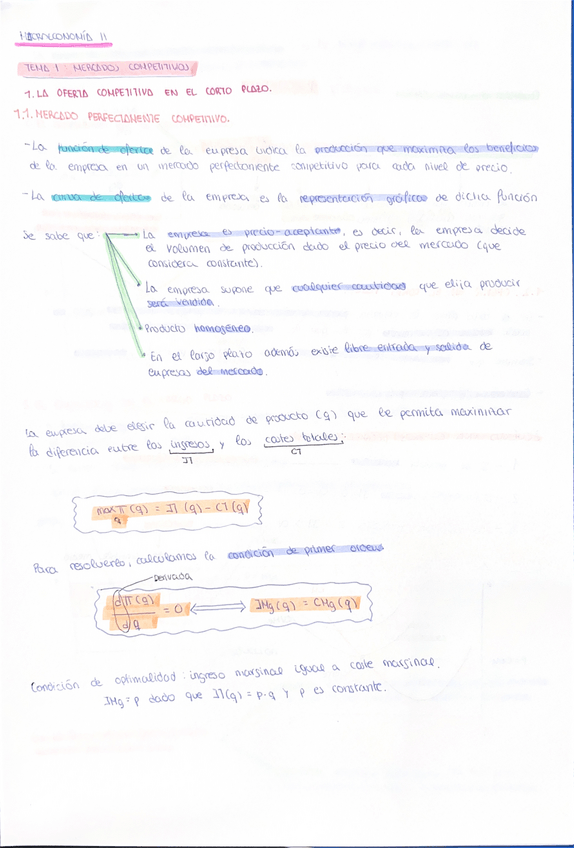 MICROECONOMÍA II
TEMA 1 MERCADOS COMPETITIVOS
1. LA OFERTA COMPETITIVA EN EL CORTO PLAZO.
1.1. MERCADO PERFECTAMENTE COMPETITIVO.
-La función de oferta de la empresa indica la producción que maximiza los beneficios
de la empresa en un mercado perfectamente competitivo para cada nivel de precio.
-La curva de oferta de la empresa es la representación gráfica de dicha función
Se sabe que: La empresa es precio-aceptante, es decir, la empresa decide
el volumen de producción dado el precio del mercado (que
considera constante).
La empresa supone que cualquier cantidad que elija producir
será vendida.
Producto homogéneo.
En el largo plazo además existe libre entrada y salida de
empresas del mercado.
La empresa debe elegir la cantidad de producto (q) que le permita maximizar
la diferencia entre los ingresos y los costes totales:
IT CT
max π (q) = IT (q) - CT (q)
q
Para resolverlo, calculamos la condición de primer orden
Derivada
dπ(q) / dq = 0 ⟺ IMg (q) = CMg (q)
Condición de optimalidad: ingreso marginal igual a coste marginal.
IMg = p dado que IT(q) = p·q y p es constante.